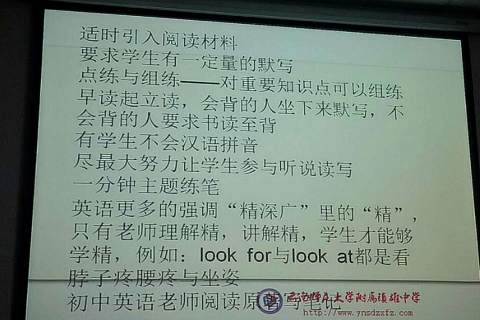 适时引入阅读材料
要求学生有一定量的默写
点练与组练——对重要知识点可以组练
早读起立读，会背的人坐下来默写，不
会背的人要求书读至背
有学生不会汉语拼音
尽最大努力让学生参与听说读写
一分钟主题练笔
英语更多的强调“精深广”里的“精”，
只有老师理解精，讲解精，学生才能够
学精，例如：look for与look at都是看
脖子疼腰疼与坐姿
初中英语老师阅读原著写笔记
大学附属镇雄中学
www.ynsdzxfz.com